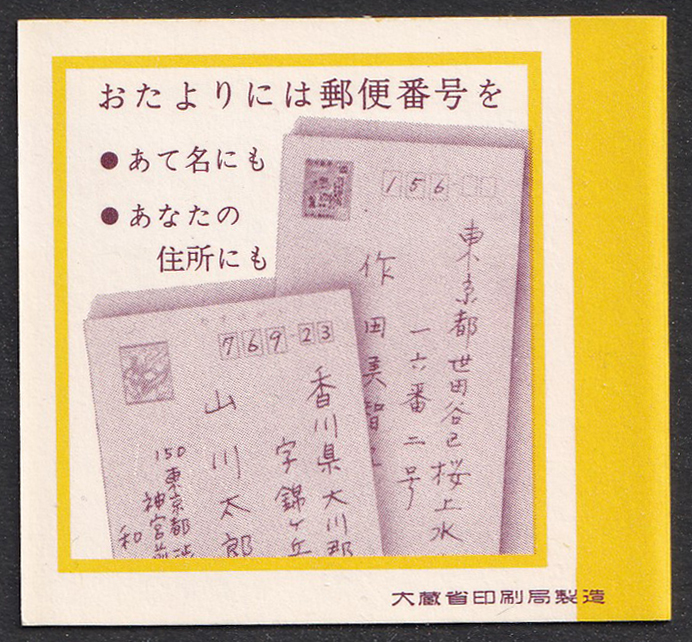 おたよりには郵便番号を
●あて名にも
●あなたの
住所にも
156
東京都世田谷区桜上水
一六番二号
作田美智
769-23
香川県大川郡
字錦ヶ丘
山川太郎
150
東京都渋
神宮前
和
大蔵省印刷局製造